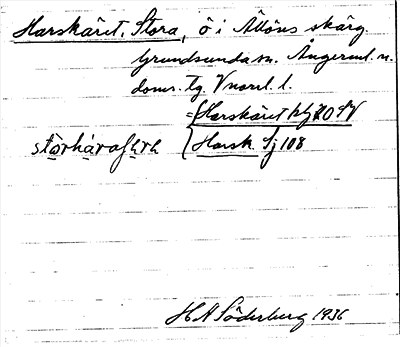 Harskäret, Stora, ö i Allöns skärg.
Grundsunda sn. Ångerml. n.
doms. tg. Vnorrl. l.
={Harskäret ktj 70 SV
{Harsk Sj 108
H A Söderberg 1936